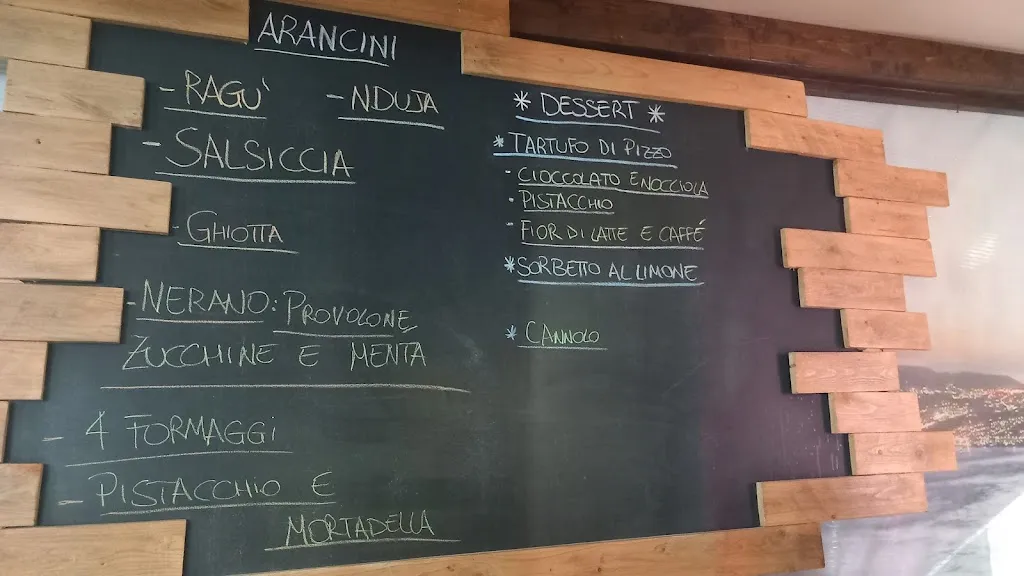 ARANCINI
- RAGU' - NDUJA
- SALSICCIA
- GHIOTTA
- NERANO: PROVOLONE
ZUCCHINE E MENTA
- 4 FORMAGGI
- PISTACCHIO E
MORTADELLA
* DESSERT *
* TARTUFO DI PIZZO
- CIOCCOLATO E NOCCIOLA
- PISTACCHIO
- FIOR DI LATTE E CAFFÉ
* SORBETTO AL LIMONE
* CANNOLO